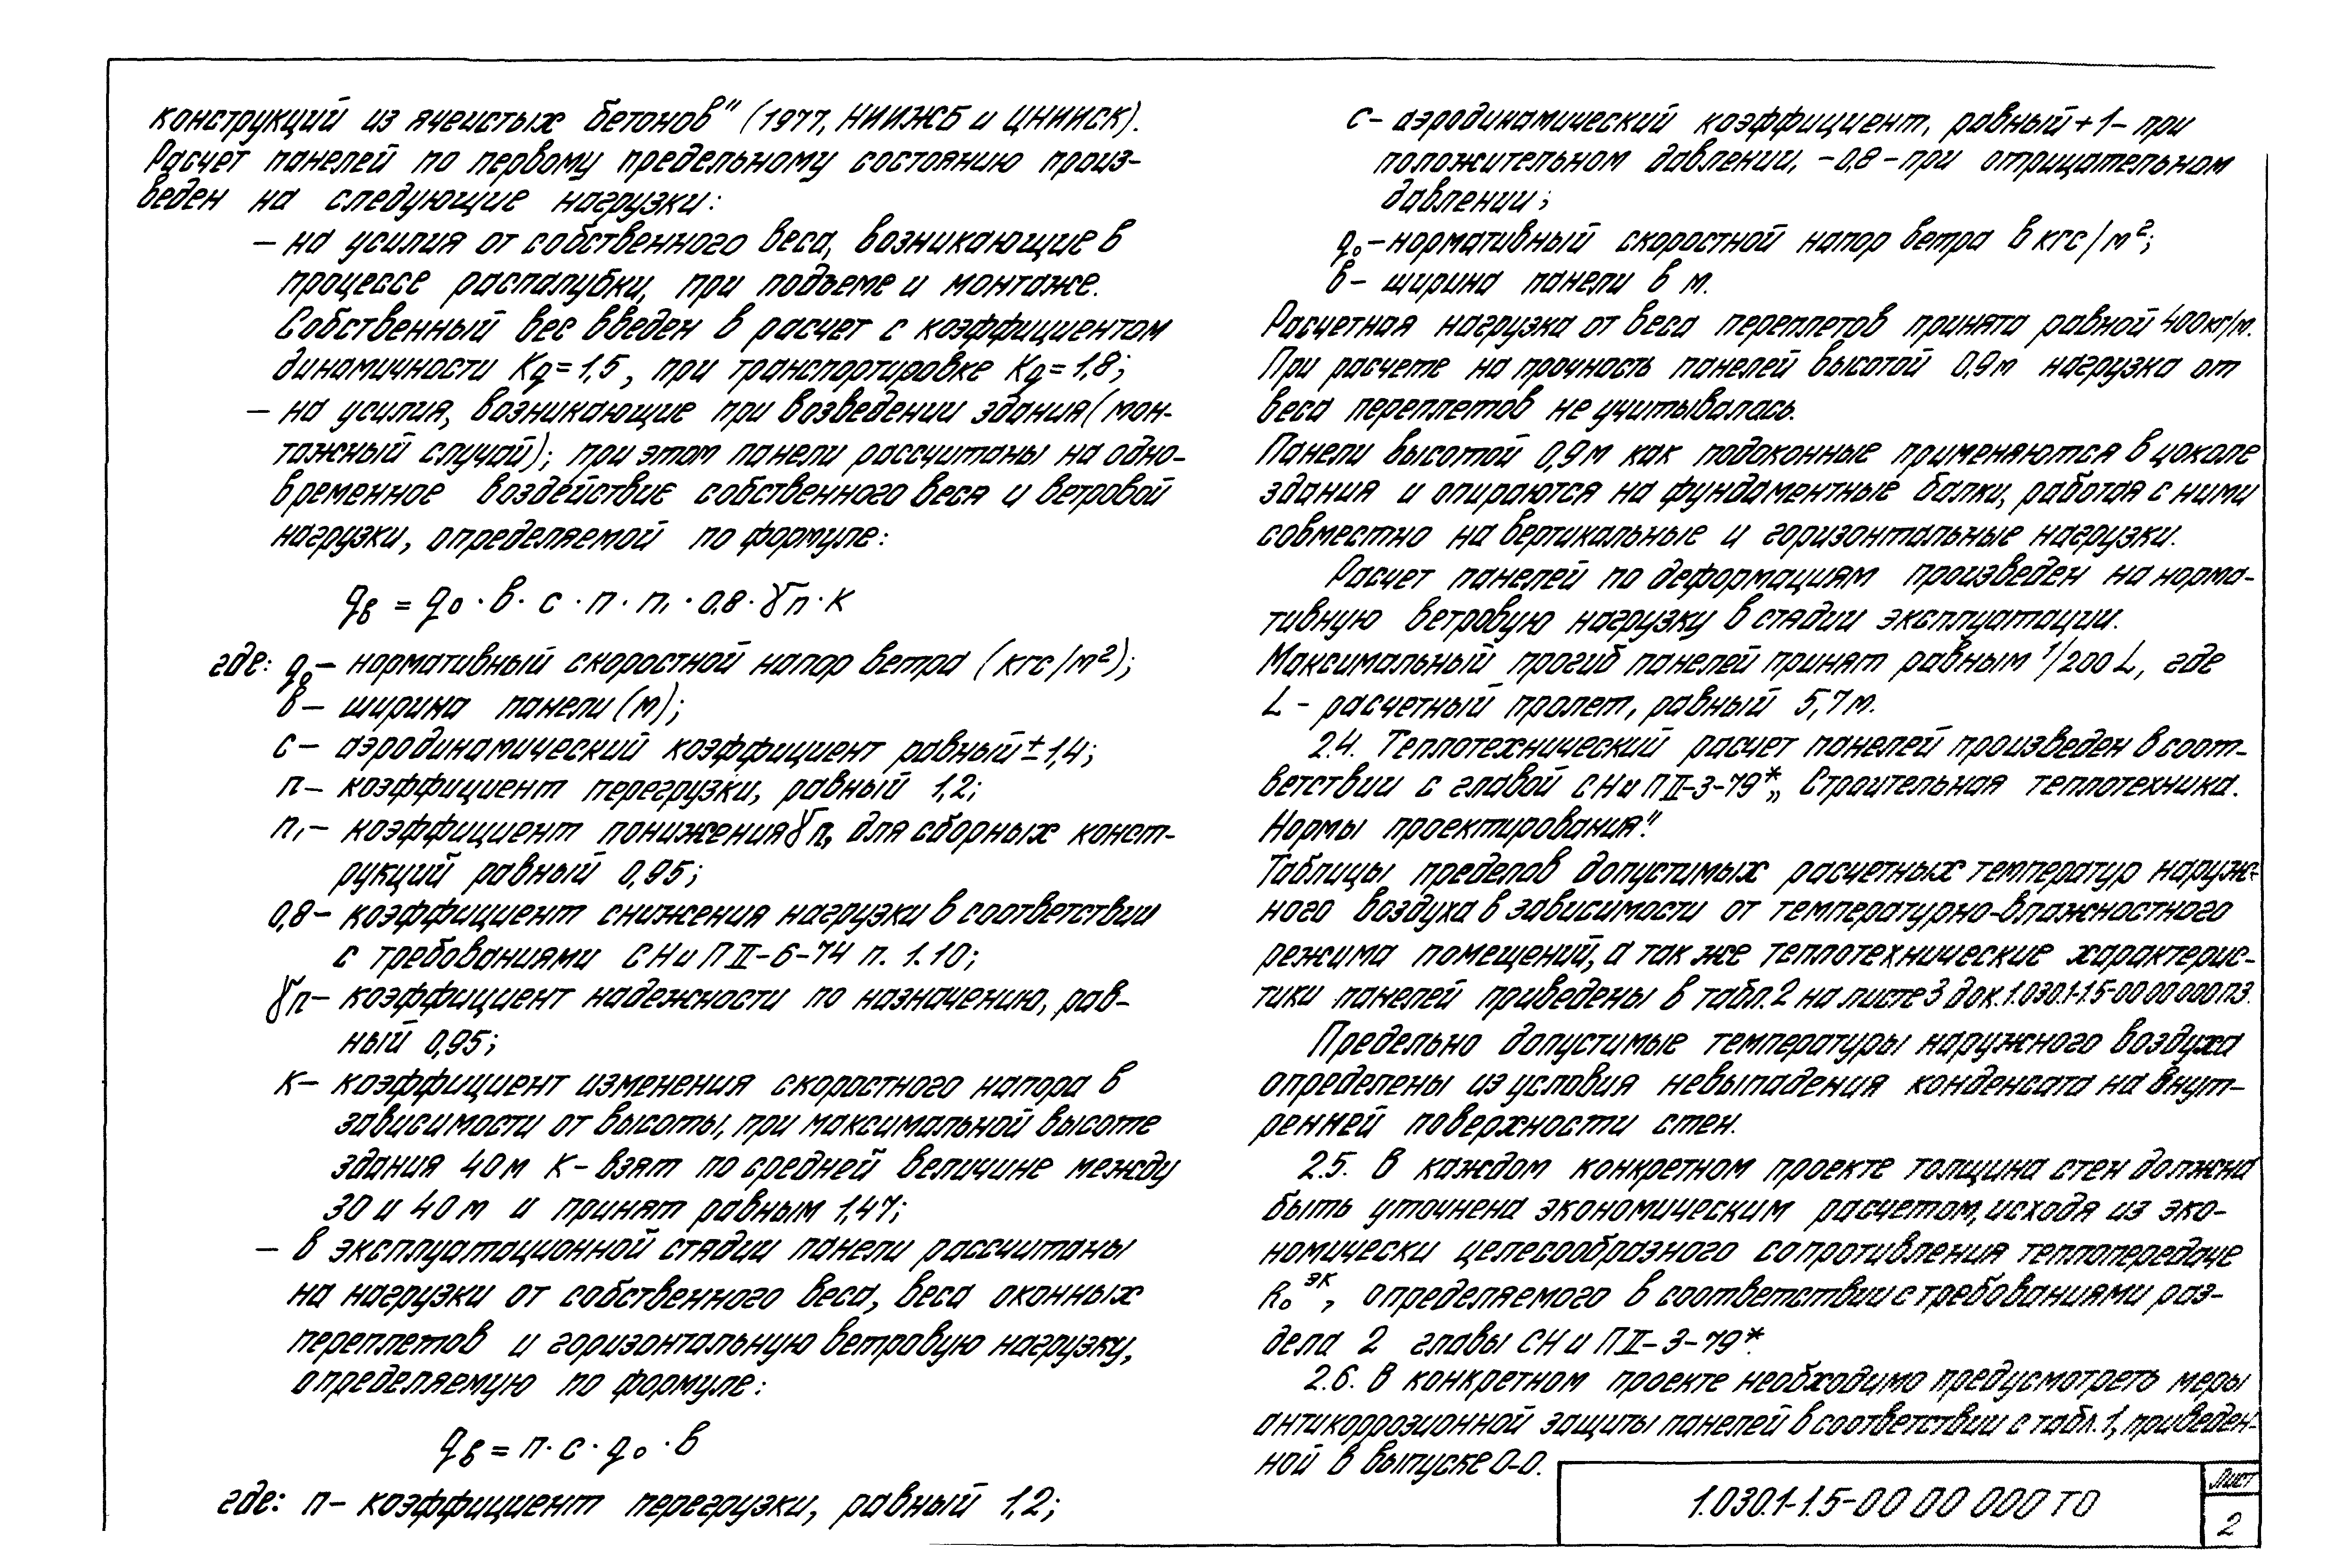 конструкций из ячеистых бетонов" (1977, НИИЖБ и ЦНИИСК).
Расчет панелей по первому предельному состоянию произ-
веден на следующие нагрузки:
– на усилия от собственного веса, возникающие в
процессе распалубки, при подъеме и монтаже.
Собственный вес введен в расчет с коэффициентом
динамичности Kд=1,5, при транспортировке Kд=1,8;
– на усилия, возникающие при возведении здания (мон-
тажный случай); при этом панели рассчитаны на одно-
временное воздействие собственного веса и ветровой
нагрузки, определяемой по формуле:
qв = q₀ · в · с · п · п₁ · 0,8 · γп · К
где: q₀ – нормативный скоростной напор ветра (кгс/м²);
в – ширина панели (м);
с – аэродинамический коэффициент равный ± 1,4;
п – коэффициент перегрузки, равный 1,2;
п₁ – коэффициент понижения γп, для сборных конст-
рукций равный 0,95;
0,8 – коэффициент снижения нагрузки в соответствии
с требованиями СНиП II-6-74 п. 1.10;
γп – коэффициент надежности по назначению, рав-
ный 0,95;
К – коэффициент изменения скоростного напора в
зависимости от высоты, при максимальной высоте
здания 40м К – взят по средней величине между
30 и 40м и принят равным 1,47;
– в эксплуатационной стадии панели рассчитаны
на нагрузки от собственного веса, веса оконных
переплетов и горизонтальную ветровую нагрузку,
определяемую по формуле:
qв = п · с · q₀ · в
где: п – коэффициент перегрузки, равный 1,2;
с – аэродинамический коэффициент, равный +1 – при
положительном давлении, -0,8 – при отрицательном
давлении;
q₀ – нормативный скоростной напор ветра в кгс/м²;
в – ширина панели в м.
Расчетная нагрузка от веса переплетов принята равной 400кг/м.
При расчете на прочность панелей высотой 0,9м нагрузка от
веса переплетов не учитывалась.
Панели высотой 0,9м как подоконные применяются в цоколе
здания и опираются на фундаментные балки, работая с ними
совместно на вертикальные и горизонтальные нагрузки.
Расчет панелей по деформациям произведен на норма-
тивную ветровую нагрузку в стадии эксплуатации.
Максимальный прогиб панелей принят равным 1/200 L, где
L – расчетный пролет, равный 5,7м.
2.4. Теплотехнический расчет панелей произведен в соот-
ветствии с главой СНиП II-3-79* „Строительная теплотехника.
Нормы проектирования".
Таблицы пределов допустимых расчетных температур наруж-
ного воздуха в зависимости от температурно-влажностного
режима помещений, а так же теплотехнические характерис-
тики панелей приведены в табл.2 на листе 3 док. 1.030.1-1.5-00 00 000 ПЗ.
Предельно допустимые температуры наружного воздуха
определены из условия невыпадения конденсата на внут-
ренней поверхности стен.
2.5. В каждом конкретном проекте толщина стен должна
быть уточнена экономическим расчетом, исходя из эко-
номически целесообразного сопротивления теплопередаче
R₀ᵉᵏ, определяемого в соответствии с требованиями раз-
дела 2 главы СНиП II-3-79*.
2.6. В конкретном проекте необходимо предусмотреть меры
антикоррозионной защиты панелей в соответствии с табл.1, приведен-
ной в выпуске 0-0.
1.030.1-1.5-00 00 000 ТО
Лист
2